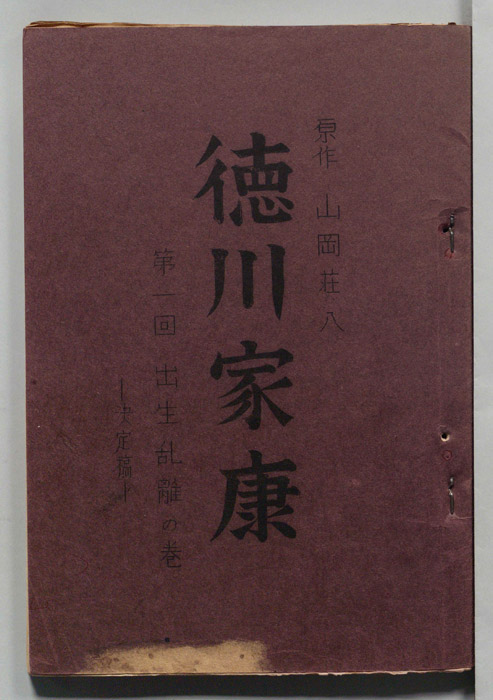 原作 山岡荘八
徳川家康
第一回 出生乱離の巻
―決定稿―